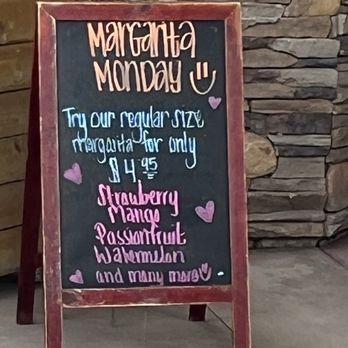 Margarita
Monday
Try our regular size
margarita for only
$4.95
Strawberry
Mango
Passionfruit
Watermelon
and many more